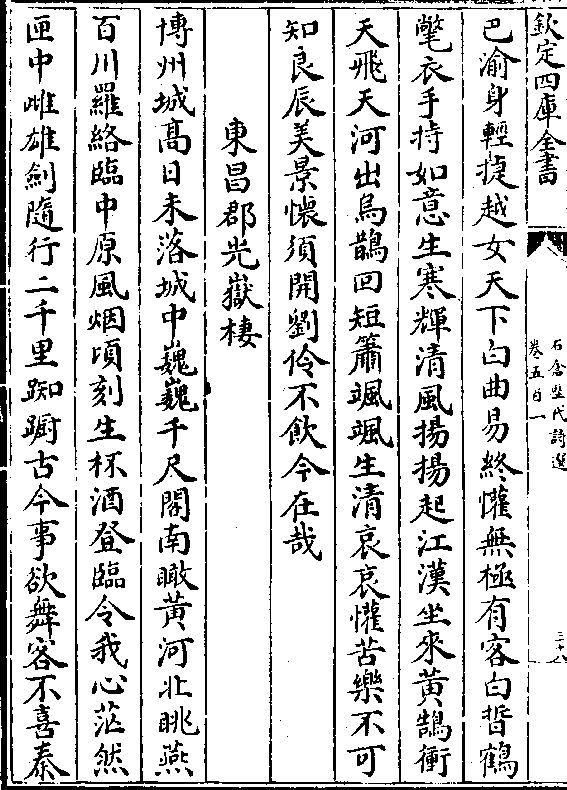 欽定四庫全書
石倉歷代詩選
卷五百一
三十八
巴渝身輕捷越女天下白曲易終懽無極有客白晳鶴
氅衣手持如意生寒輝清風揚揚起江漢坐來黃鵠衝
天飛天河出烏鵲回短簫颯颯生清哀哀懽苦樂不可
知良辰美景懷須開劉伶不飲今在哉
東昌郡光嶽樓
博州城髙日未落城中巍巍千尺閣南瞰黃河北眺燕
百川羅絡臨中原風烟頃刻生杯酒登臨令我心茫然
匣中雌雄劍隨行二千里踟蹰古今事欲舞客不喜泰